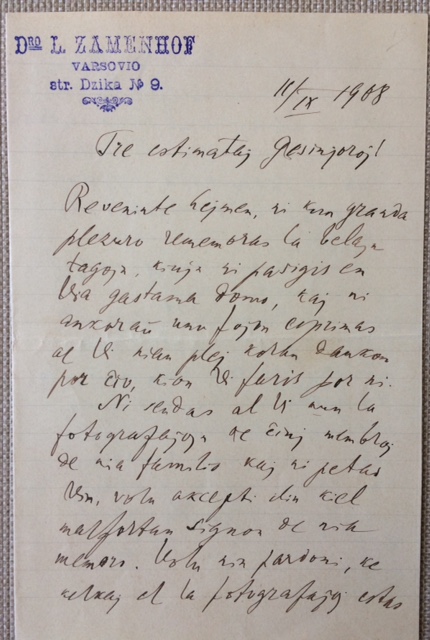 Dro L. ZAMENHOF
VARSOVIO
str. Dzika № 9.
11/IX 1908
Tre estimataj Gesinjoroj!
Reveninte hejmen, ni kun granda
plezuro rememoras la belajn
tagojn, kiujn ni pasigis en
Via gastama domo, kaj ni
ankoraŭ unu fojon esprimas
al Vi nian plej koran dankon
por ĉio, kion Vi faris por ni.
Ni sendas al Vi nun la
fotografaĵojn de ĉiuj membroj
de nia familio kaj ni petas
Vin, volu akcepti ilin kiel
malfortan signon de nia
memoro. Volu nin pardoni, ke
kelkaj el la fotografaĵoj estas